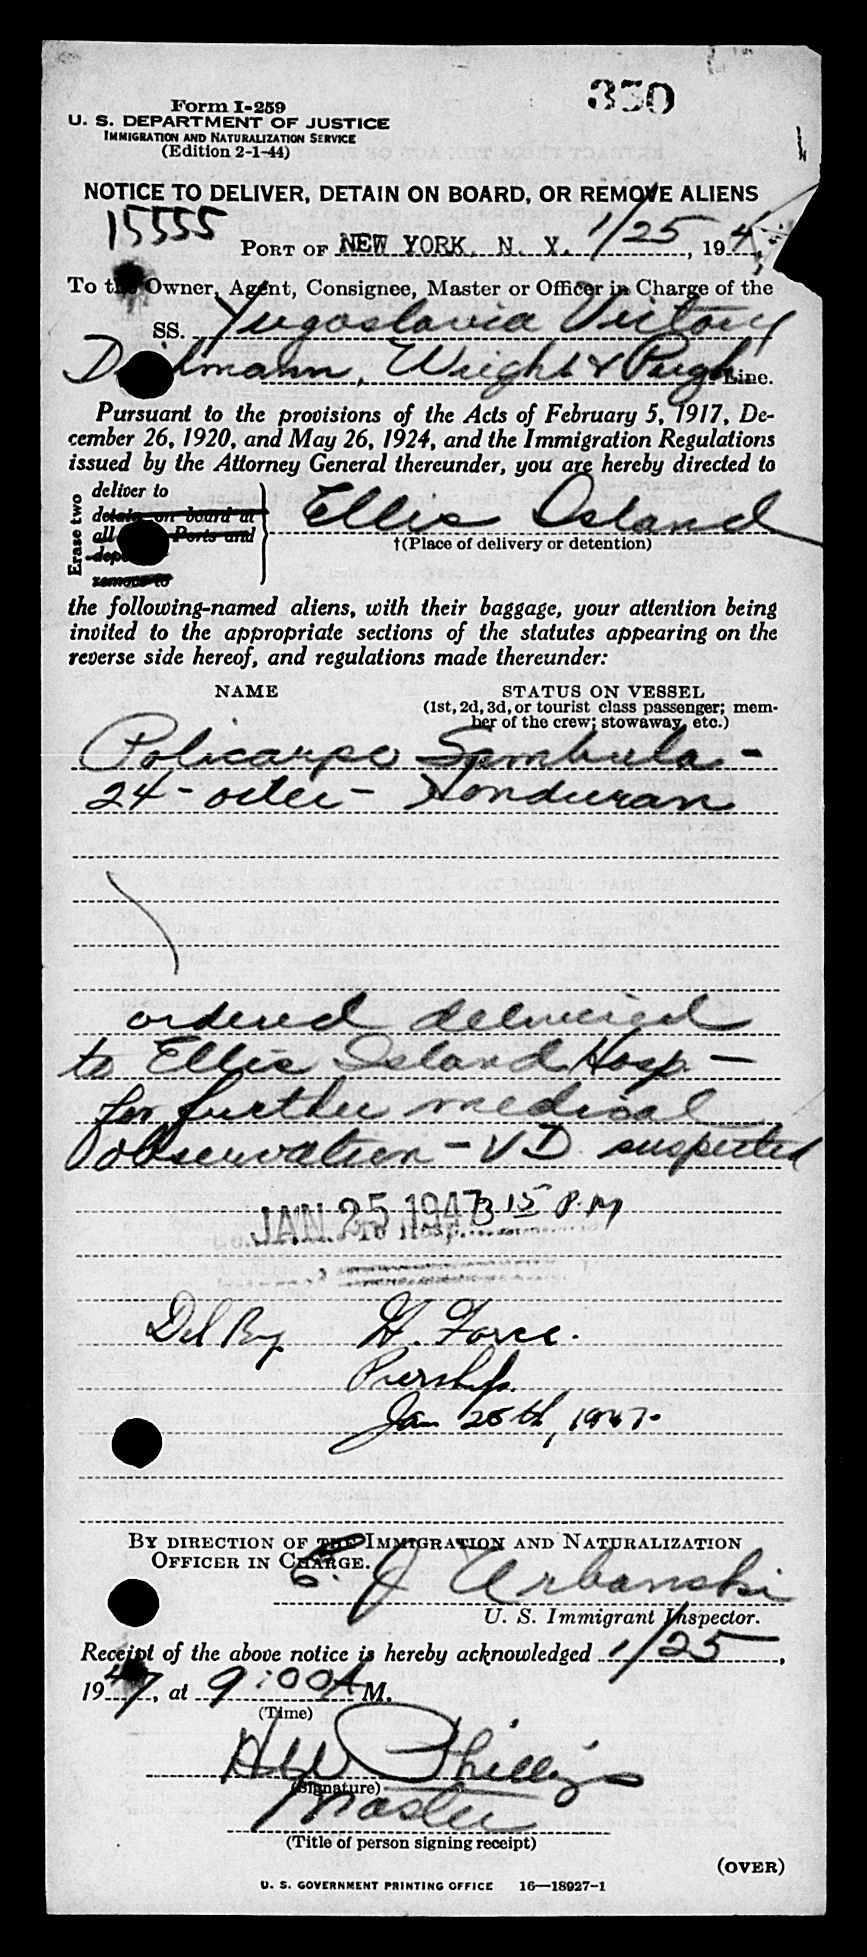 350
Form I-259
U. S. DEPARTMENT OF JUSTICE
IMMIGRATION AND NATURALIZATION SERVICE
(Edition 2-1-44)
NOTICE TO DELIVER, DETAIN ON BOARD, OR REMOVE ALIENS
15555
PORT OF NEW YORK, N. Y. 1/25, 194
To the Owner, Agent, Consignee, Master or Officer in Charge of the
SS. Yugoslavia Victory
D lmann, Wright & Pugh Line.
Pursuant to the provisions of the Acts of February 5, 1917, De-
cember 26, 1920, and May 26, 1924, and the Immigration Regulations
issued by the Attorney General thereunder, you are hereby directed to
Erase two
deliver to
detain on board at
all Ports and
dep
remove to
Ellis Island
†(Place of delivery or detention)
the following-named aliens, with their baggage, your attention being
invited to the appropriate sections of the statutes appearing on the
reverse side hereof, and regulations made thereunder:
NAME STATUS ON VESSEL
(1st, 2d, 3d, or tourist class passenger; mem-
ber of the crew; stowaway, etc.)
Policarpo Sambula -
24 - oiler - Honduran
ordered delivered
to Ellis Island Hosp -
for further medical
observation - VD suspected
JAN 25 1947 3 15 P.M
Del By H. Force.
Jan 25th, 1947.
BY DIRECTION OF THE IMMIGRATION AND NATURALIZATION
OFFICER IN CHARGE.
E. J Urbanski
U. S. Immigrant Inspector.
Receipt of the above notice is hereby acknowledged 1/25,
1947, at 9:00 A M.
(Time)
HW Phillips
(Signature)
Master
(Title of person signing receipt)
(OVER)
U. S. GOVERNMENT PRINTING OFFICE 16—18927-1